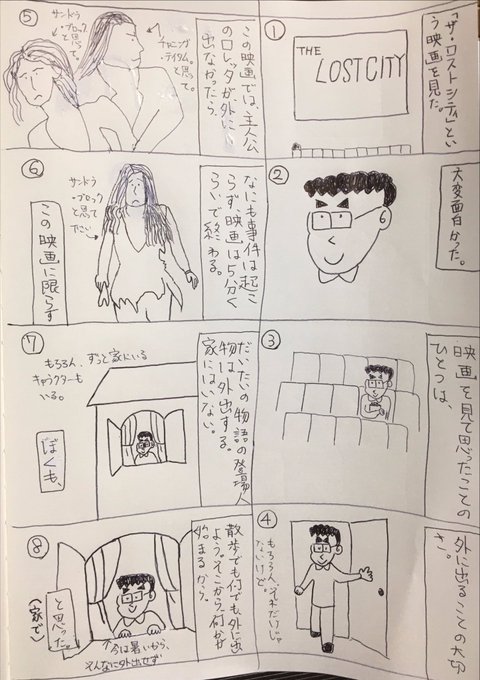 ①
「ザ・ロストシティ」とい
う映画を見た。
THE
LOST CITY
②
大変面白かった。
③
映画を見て思ったことの
ひとつは、
④
外に出ることの大切
さ。
もちろん、それだけじゃ
ないけど。
⑤
この映画では、主人公
のロレッタが外に
出なかったら、
サンドラ
・ブロック
と思って。
チャニング
・テイタム
と思って。
⑥
なにも事件は起こ
らず、映画は5分く
らいで終わる。
サンドラ
・ブロック
と思って
ださい
この映画に限らず
⑦
だいたいの物語の登場人
物は外出する。
家にはいない。
もちろん、ずっと家にいる
キャラクターも
いる。
ぼくも、
⑧
散歩でも何でも、外に出
よう。そこから、何かが
始まるから。
と思った。
(家で)
↑今は暑いから、
そんなに外出せず